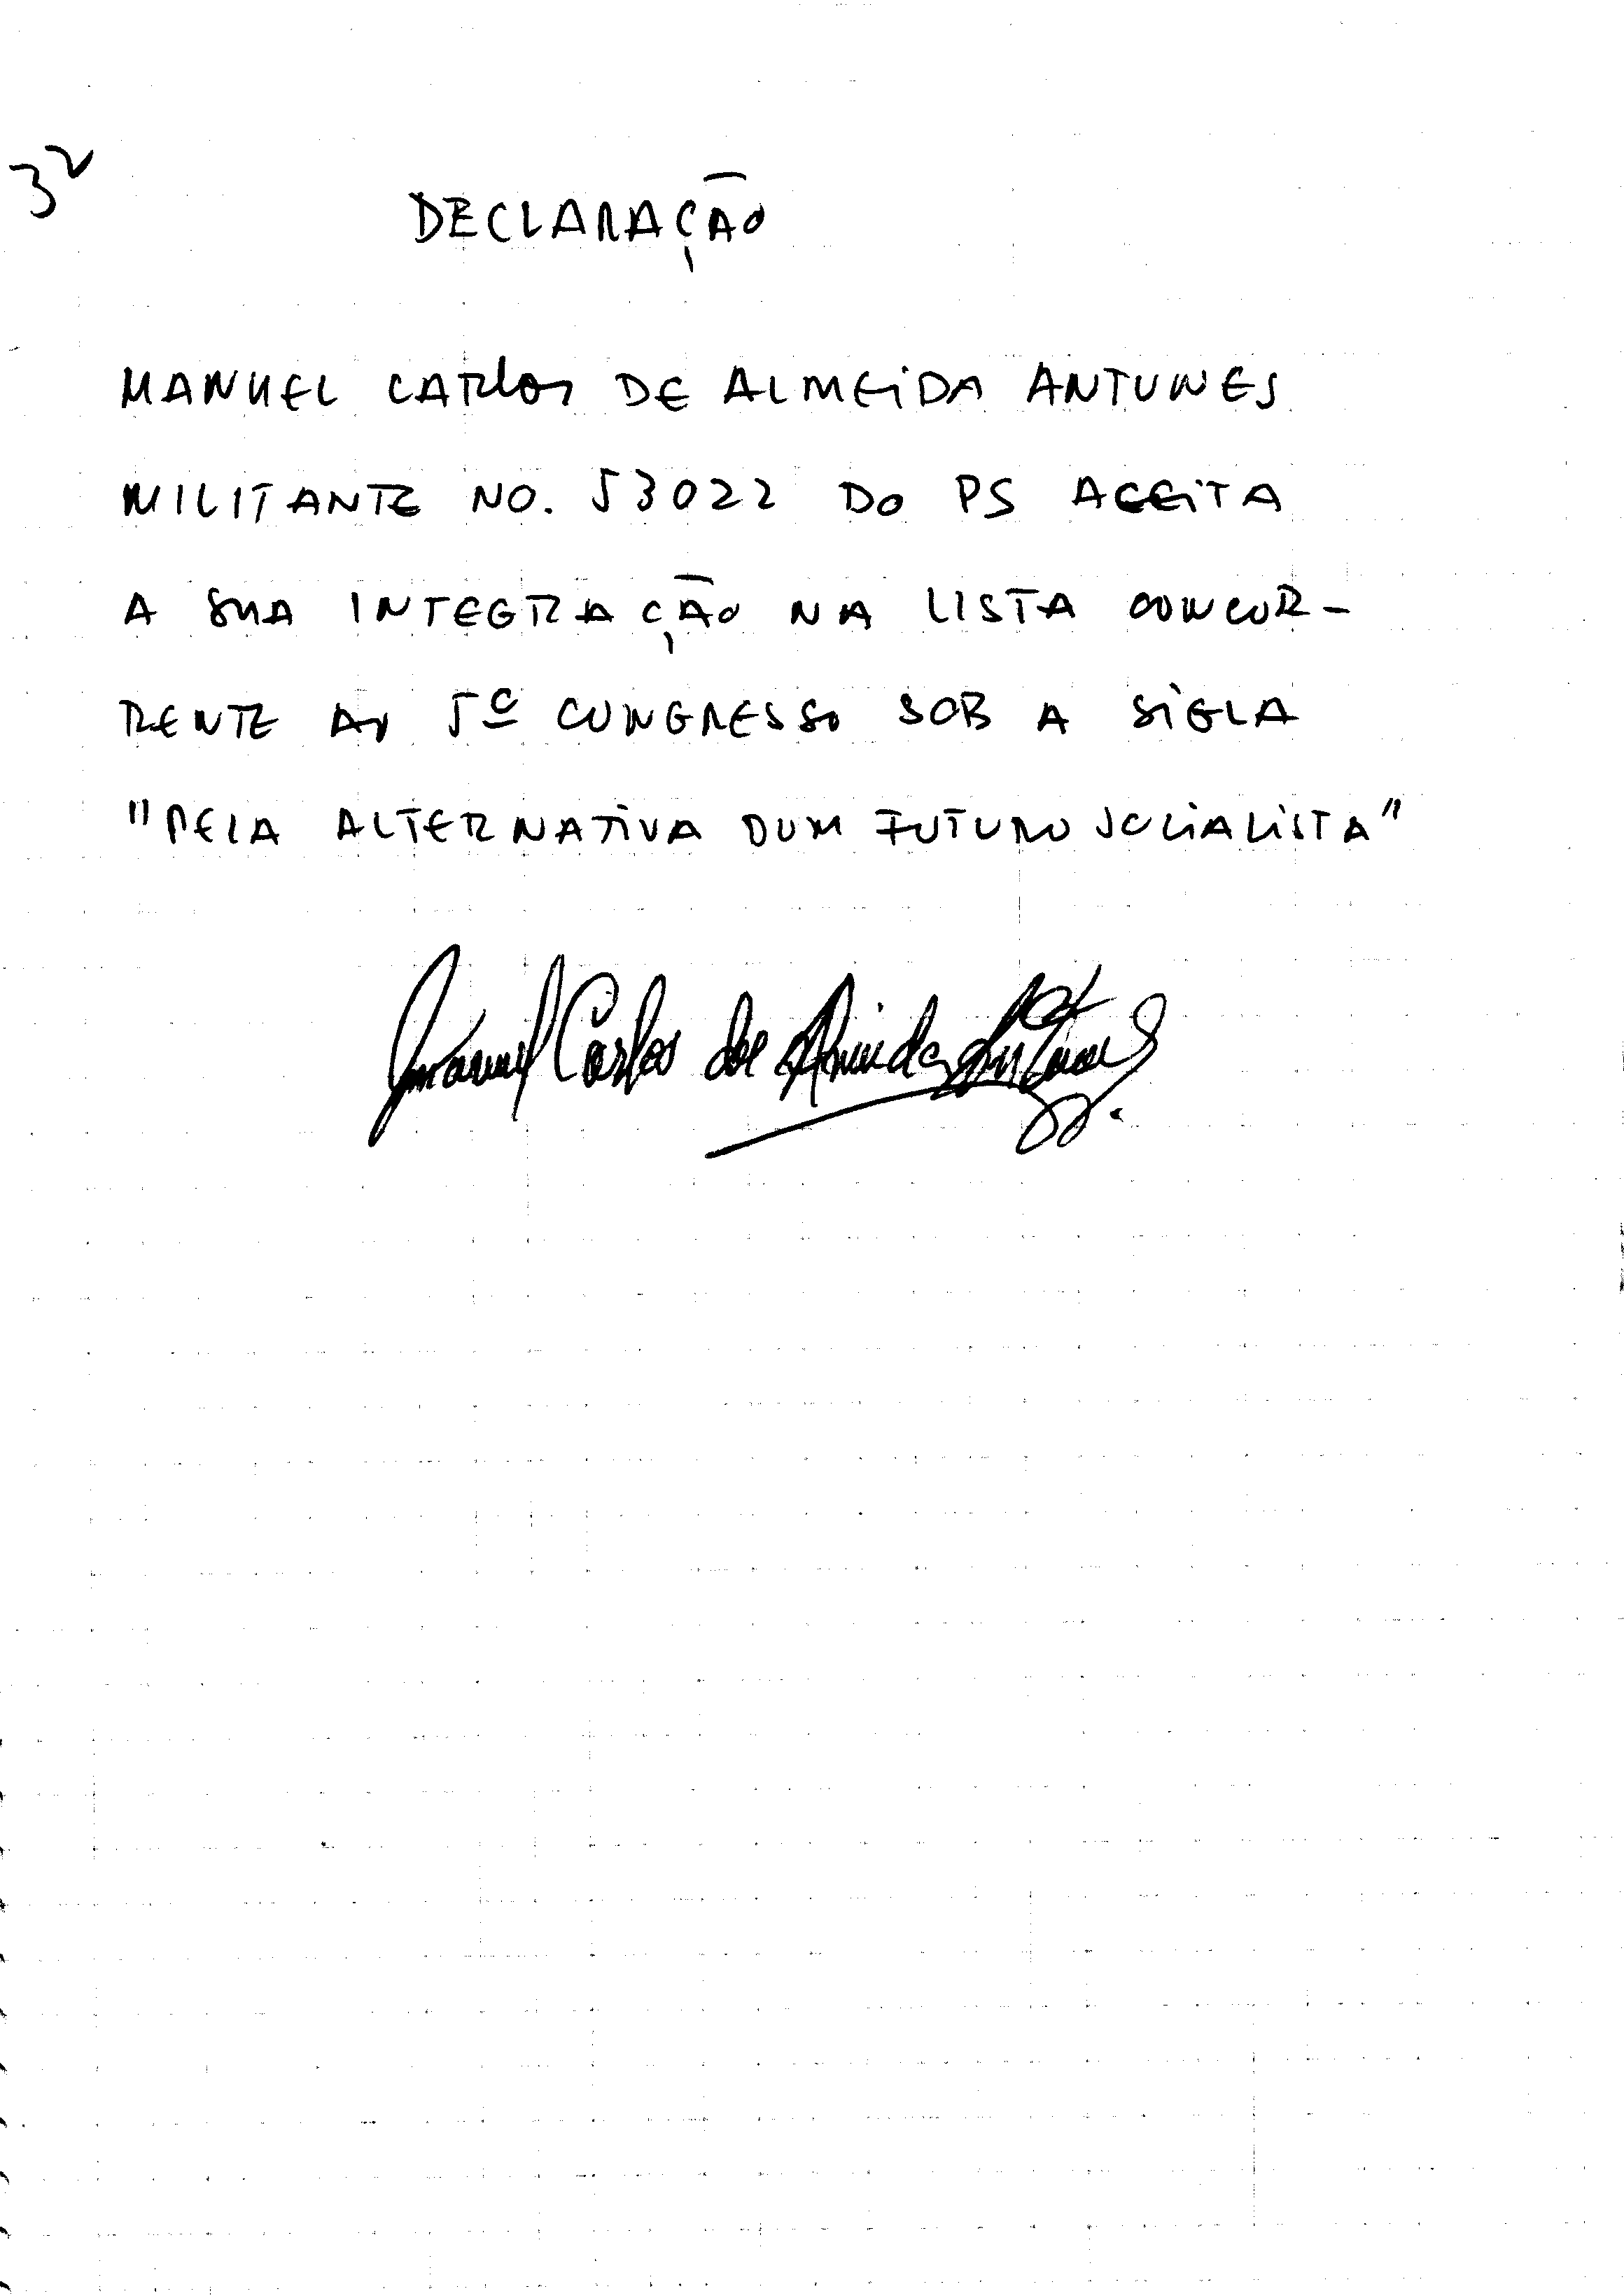 32
DECLARAÇÃO
MANUEL CARlos DE ALMEiDA ANTUNES
MILITANTE NO. 53022 DO PS ACEITA
A SUA INTEGRAÇÃO NA LISTA CONCOR-
RENTE AO 5º CONGRESSO SOB A SIGLA
"PELA ALTERNATIVA DUM FUTURO SOCIALISTA"
Manuel Carlos de Almeida Antunes